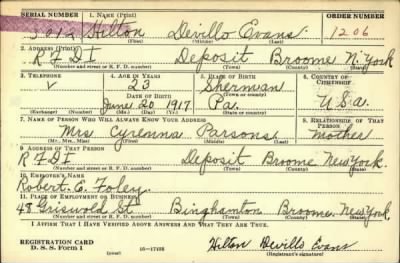 SERIAL NUMBER 1. NAME (Print) ORDER NUMBER
Hilton Devillo Evans 1206
(First) (Middle) (Last)
2. ADDRESS (Print)
R F D 1 Deposit Broome N. York
(Number and street or R. F. D. number) (Town) (County) (State)
3. TELEPHONE 4. AGE IN YEARS 5. PLACE OF BIRTH 6. COUNTRY OF CITIZENSHIP
23 Sherman
DATE OF BIRTH (Town or county)
June 20 1917 Pa. U.S.a.
(Exchange) (Number) (Mo.) (Day) (Yr.) (State or country)
7. NAME OF PERSON WHO WILL ALWAYS KNOW YOUR ADDRESS 8. RELATIONSHIP OF THAT PERSON
Mrs Cyrenna Parsons mother
(Mr., Mrs., Miss) (First) (Middle) (Last)
9. ADDRESS OF THAT PERSON
R F D 1 Deposit Broome New York.
(Number and street or R. F. D. number) (Town) (County) (State)
10. EMPLOYER'S NAME
Robert. E. Foley.
11. PLACE OF EMPLOYMENT OR BUSINESS
48 Griswold St Binghamton Broome. New York.
(Number and street or R. F. D. number) (Town) (County) (State)
I AFFIRM THAT I HAVE VERIFIED ABOVE ANSWERS AND THAT THEY ARE TRUE.
REGISTRATION CARD
D. S. S. Form 1 16-17105 Hilton Devillo Evans
(Registrant's signature)